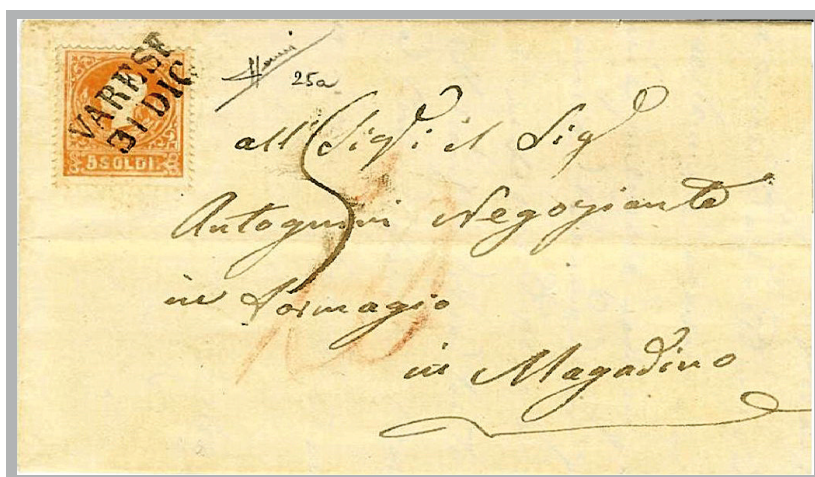 VARESE
31 DIC
5 SOLDI
25a
5
all' Sigr il Sigr
Antognini Negoziante
in formagio
in Magadino